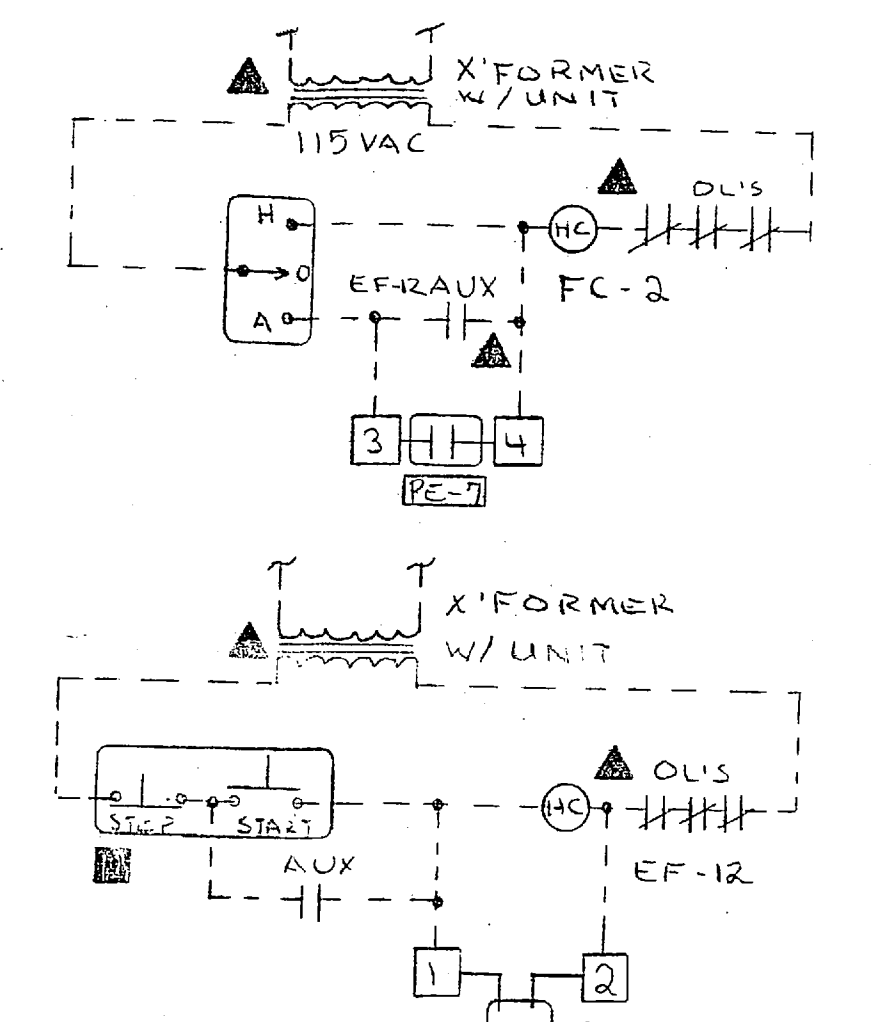 X'FORMER
W/ UNIT
115 VAC
OL'S
H
HC
O
EF-12 AUX
FC-2
A
3
4
PE-7
X'FORMER
W/ UNIT
OL'S
HC
STOP
START
AUX
EF-12
1
2